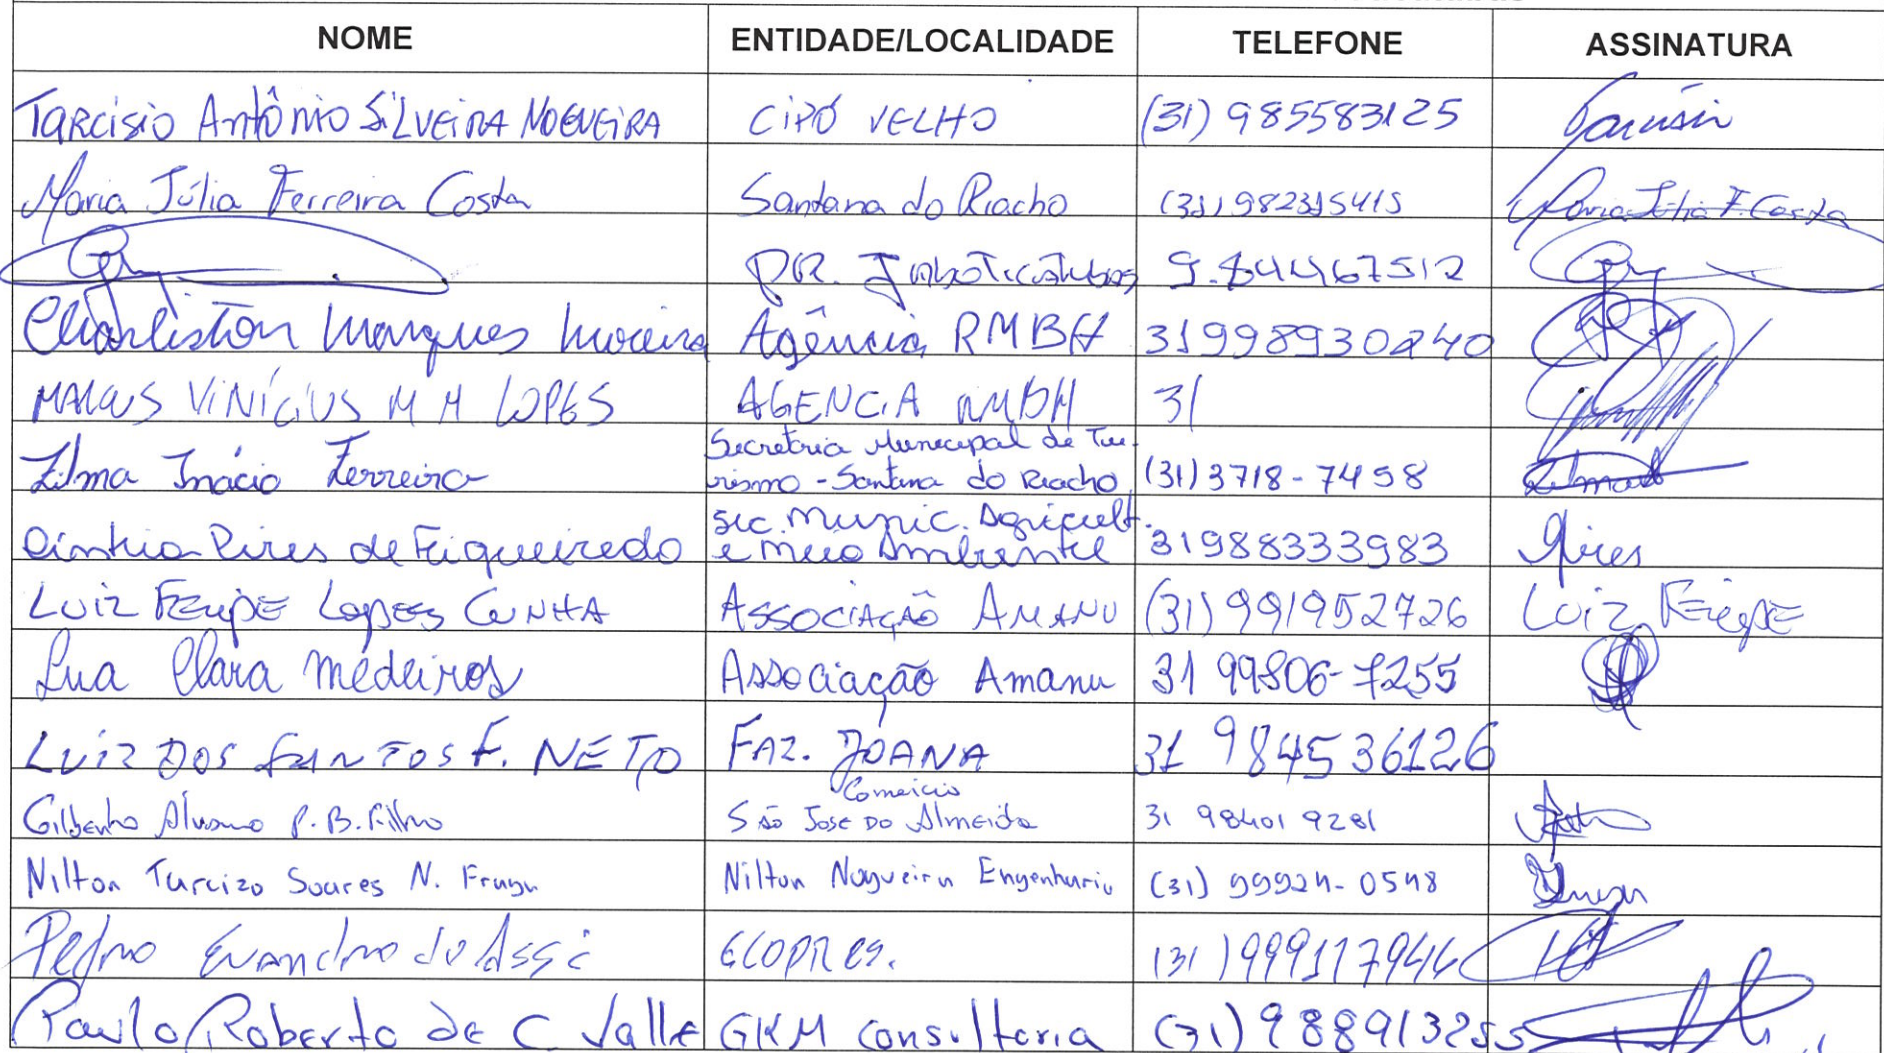 NOME ENTIDADE/LOCALIDADE TELEFONE ASSINATURA
TARCISIO ANTÔNIO SILVEIRA NOGUEIRA CIPÓ VELHO (31) 985583125 Tarcísio
Maria Júlia Ferreira Costa Santana do Riacho (31) 982315415 Maria Júlia F. Costa
PR. Jaboticatubas 9.84467512
Charliston Marques Moreira Agência RMBH 31998930240
MARCUS VINÍCIUS M M LOPES AGENCIA RMBH 31
Secretria Municipal de Tu-
Zilma Inácio Ferreira rismo - Santana do Riacho (31) 3718-7498 Zilma
Sec. Munic. Agricult.
Cinthia Pires de Figueiredo e Meio Ambiente 31988333983 Pires
LUIZ FELIPE Lopes CUNHA ASSOCIAÇÃO AMANU (31) 991952726 LUIZ FELIPE
Lua Clara Medeiros Associação Amanu 31 99806-7255
LUIZ DOS SANTOS F. NETO FAZ. JOANA 31 984536126
Comércio
Gilberto P. B. Filho SÃO JOSE DO Almeida 31 98401 9281
Nilton Tarcizo Soares N. Fraga Nilton Nogueira Engenharia (31) 99924-0548
Pedro Evandro de Assis ECOPRES. (31) 999117944
Paulo Roberto de C Valle GKM Consultoria (31) 988913255